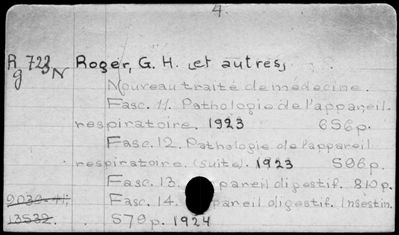 4.
R 723 N Roger, G. H. et autres,
g
Nouveau traité de médecine.
Fasc. 11. Pathologie de l'appareil
respiratoire. 1923 656p.
Fasc. 12. Pathologie de l'appareil
respiratoire. (suite). 1923 596p.
Fasc. 13. pareil digestif. 810p.
Fasc. 14. pareil digestif. Insestin.
13532. 579p. 1924